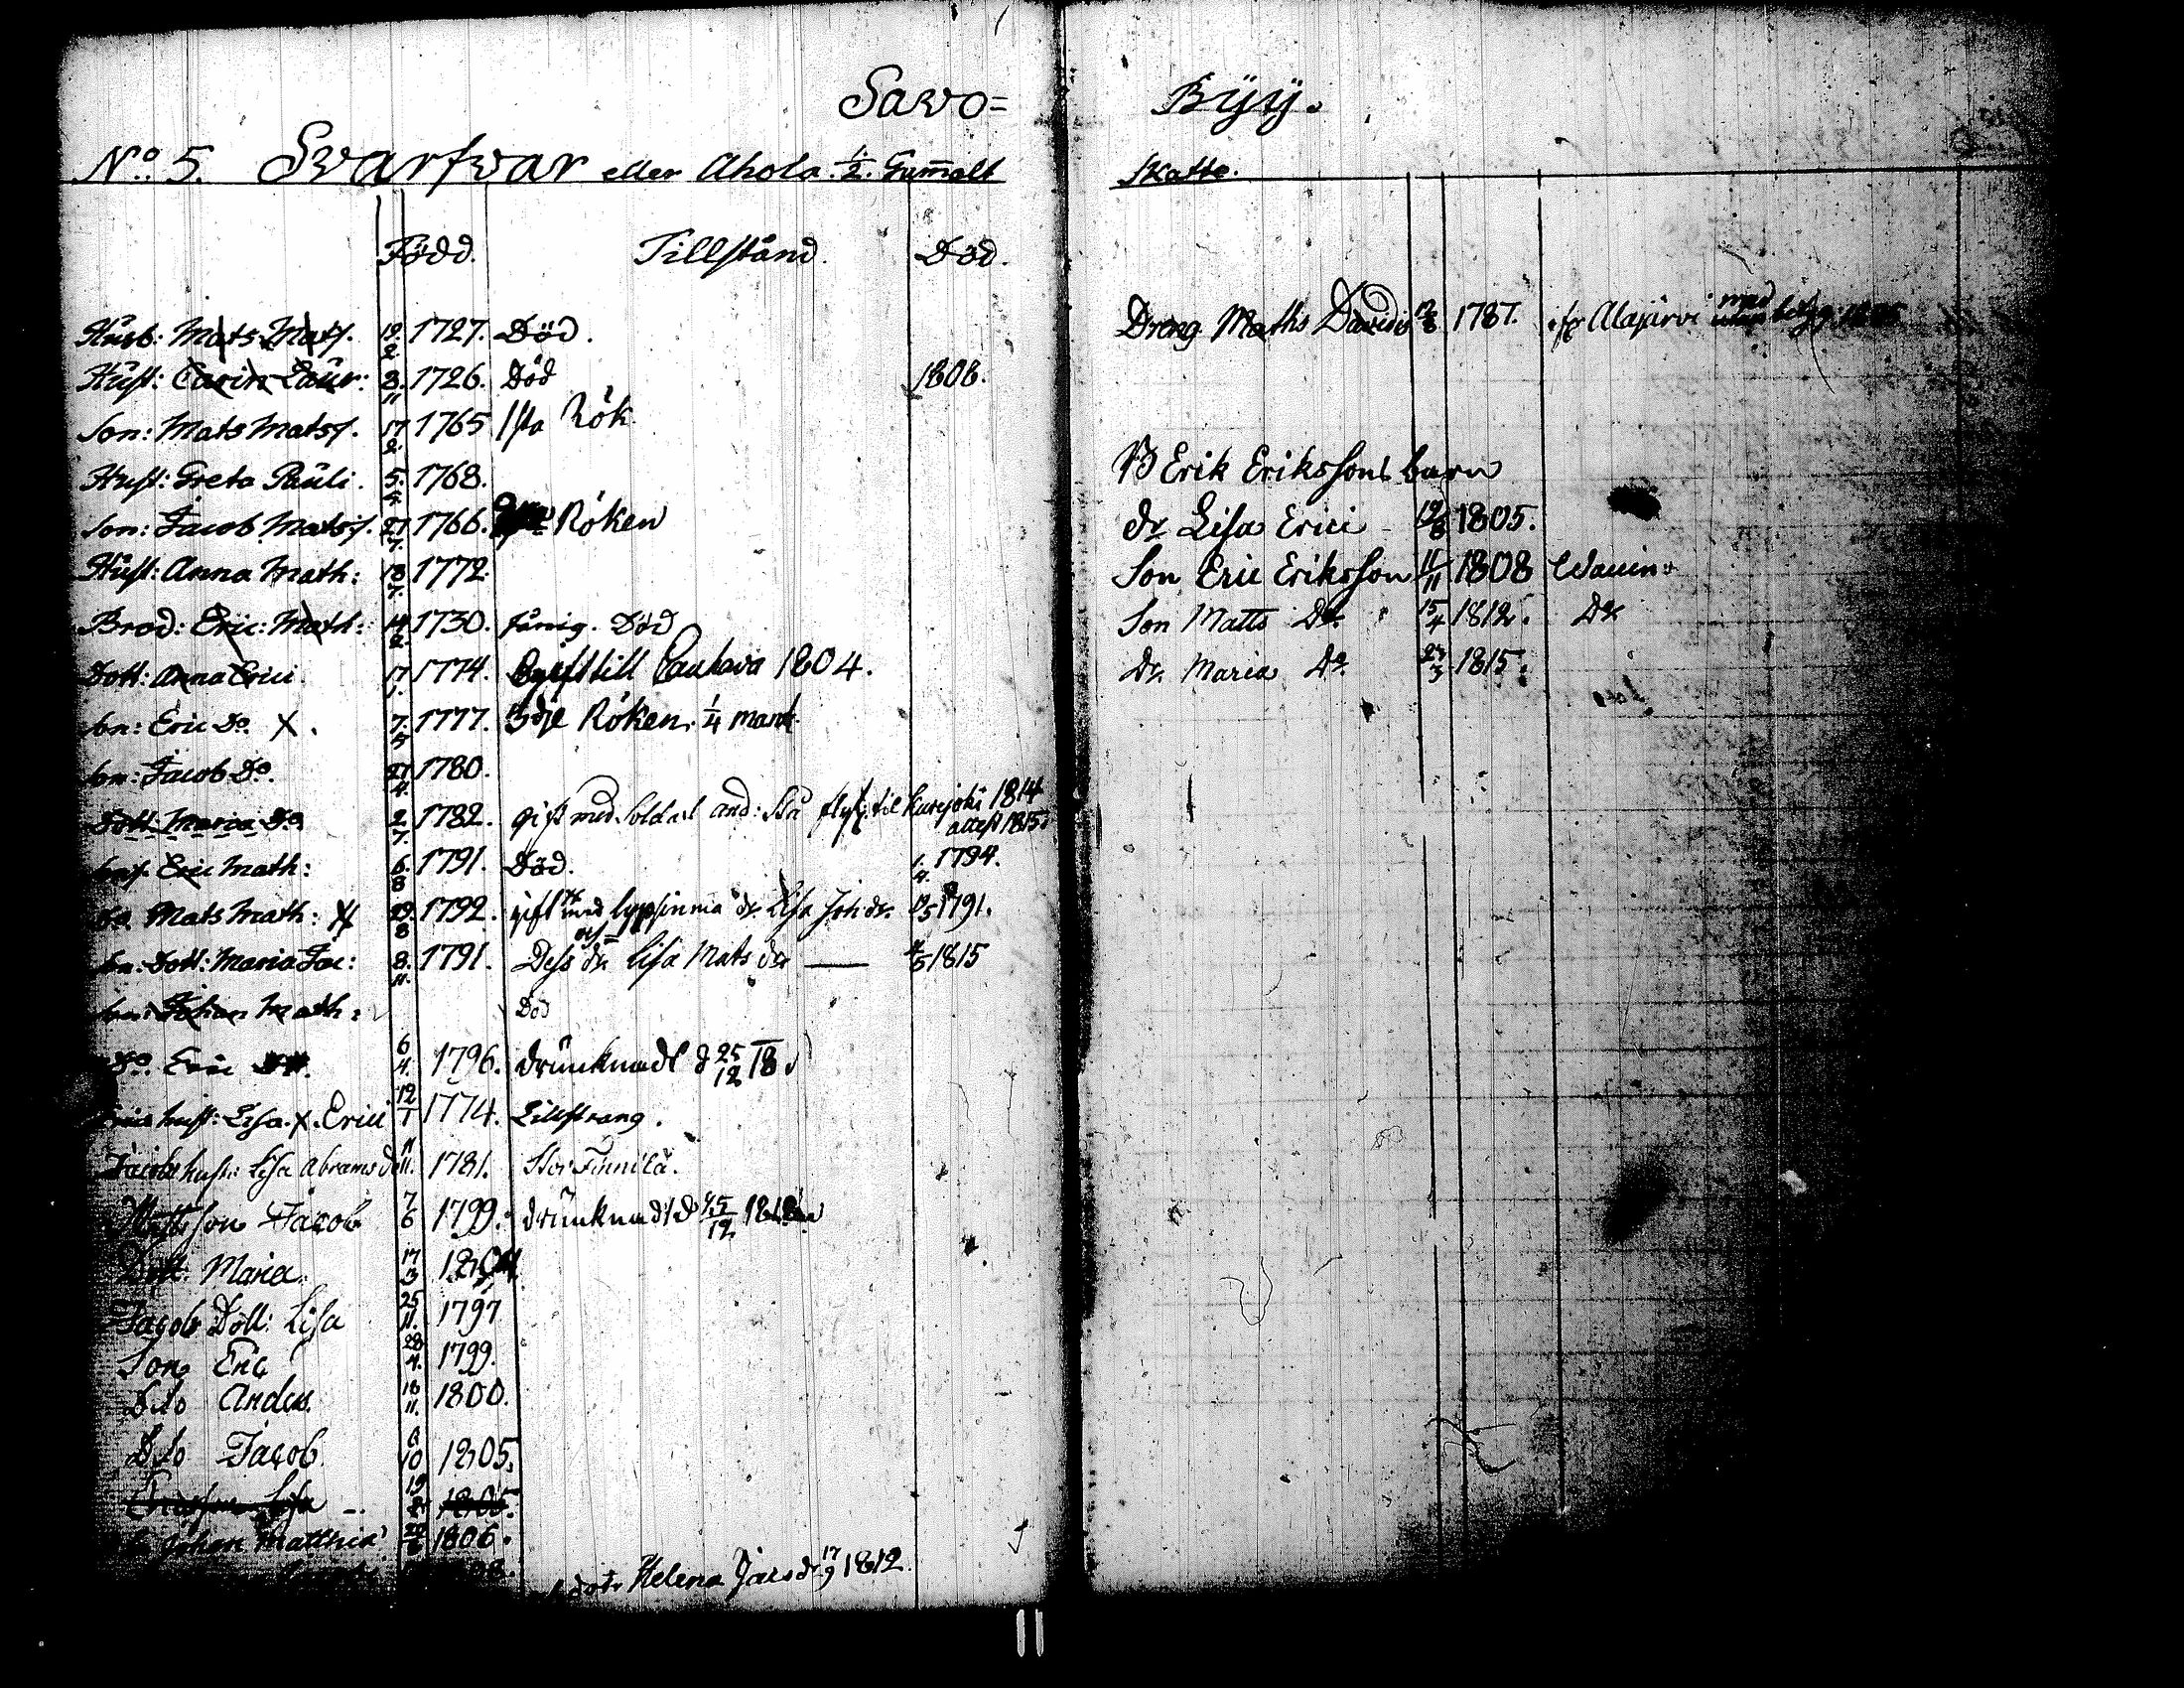 Savo=
No 5. Svarfvar eller Ahola. 1/2. Gam̄alt
Född. Tillstånd. Död.
Husb: Mats Mats. 19/2. 1727. Död.
Hust: Carin Laur: 3/11 1726. Död 1808.
Son: Mats Matss. 17/2. 1765 1sta Rök
Hust: Greta Pauli. 5/4. 1768.
Son: Jacob Matss. 27/7. 1766. Röken
Hust: Anna Math: 18/7. 1772.
Brod: Eric: Math: 14/2. 1730. fånig. Död
Dott: Anna Erici. 17/1. 1774. gift till Lauhava 1804.
Son: Eric Do. X. 7/5 1777. 3dje Röken. 1/4 mant.
Son: Jacob Do. 27/4. 1780.
Dott: Maria Do. 2/7. 1782. gift med Soldat And: Stå flytt til Kurejoki 1814
attest 1815.
Eric Math: 6/8 1791. Död. 1/4. 1794.
Mats Math: X 29/8 1792. gift med Lypsinma dr. Lisa Joh:dr. 19/5 1791.
Dott: Maria Jac: 8/11. 1791. Dess dr Lisa Mats dr — 4/5 1815
Johan Math: Död
Do Eric 6/4. 1796. drunknade d 25/12 18
hust: Lisa. X. Erici 12/1 1774. Lillstrang.
Jacobs hust: Lisa Abrams dr 11/11. 1781. Stor Finnilä.
Matts son Jacob 7/6 1799. drunknade d 25/12 1818
Dott: Maria 17/3 1804
Jacob Dott: Lisa 25/11. 1797
Son Eric 28/4. 1799.
Dito Anders 18/11. 1800.
Dito Jacob 6/10 1805.
Lisa 19/8 1805.
Johan Matthia 1806.
dotr Helena Jacsdr 17/9 1812.
Byy.
Skatte.
Dreng Maths Davids 12/8 1787. Alajärvi med betyg
Erik Eriksons barn
dr Lisa Erici 19/8 1805.
Son Eric Eriksson 11/11 1808
Son Matts Do 15/4 1812. Do
Dr. Maria Do. 27/3 1815.
11